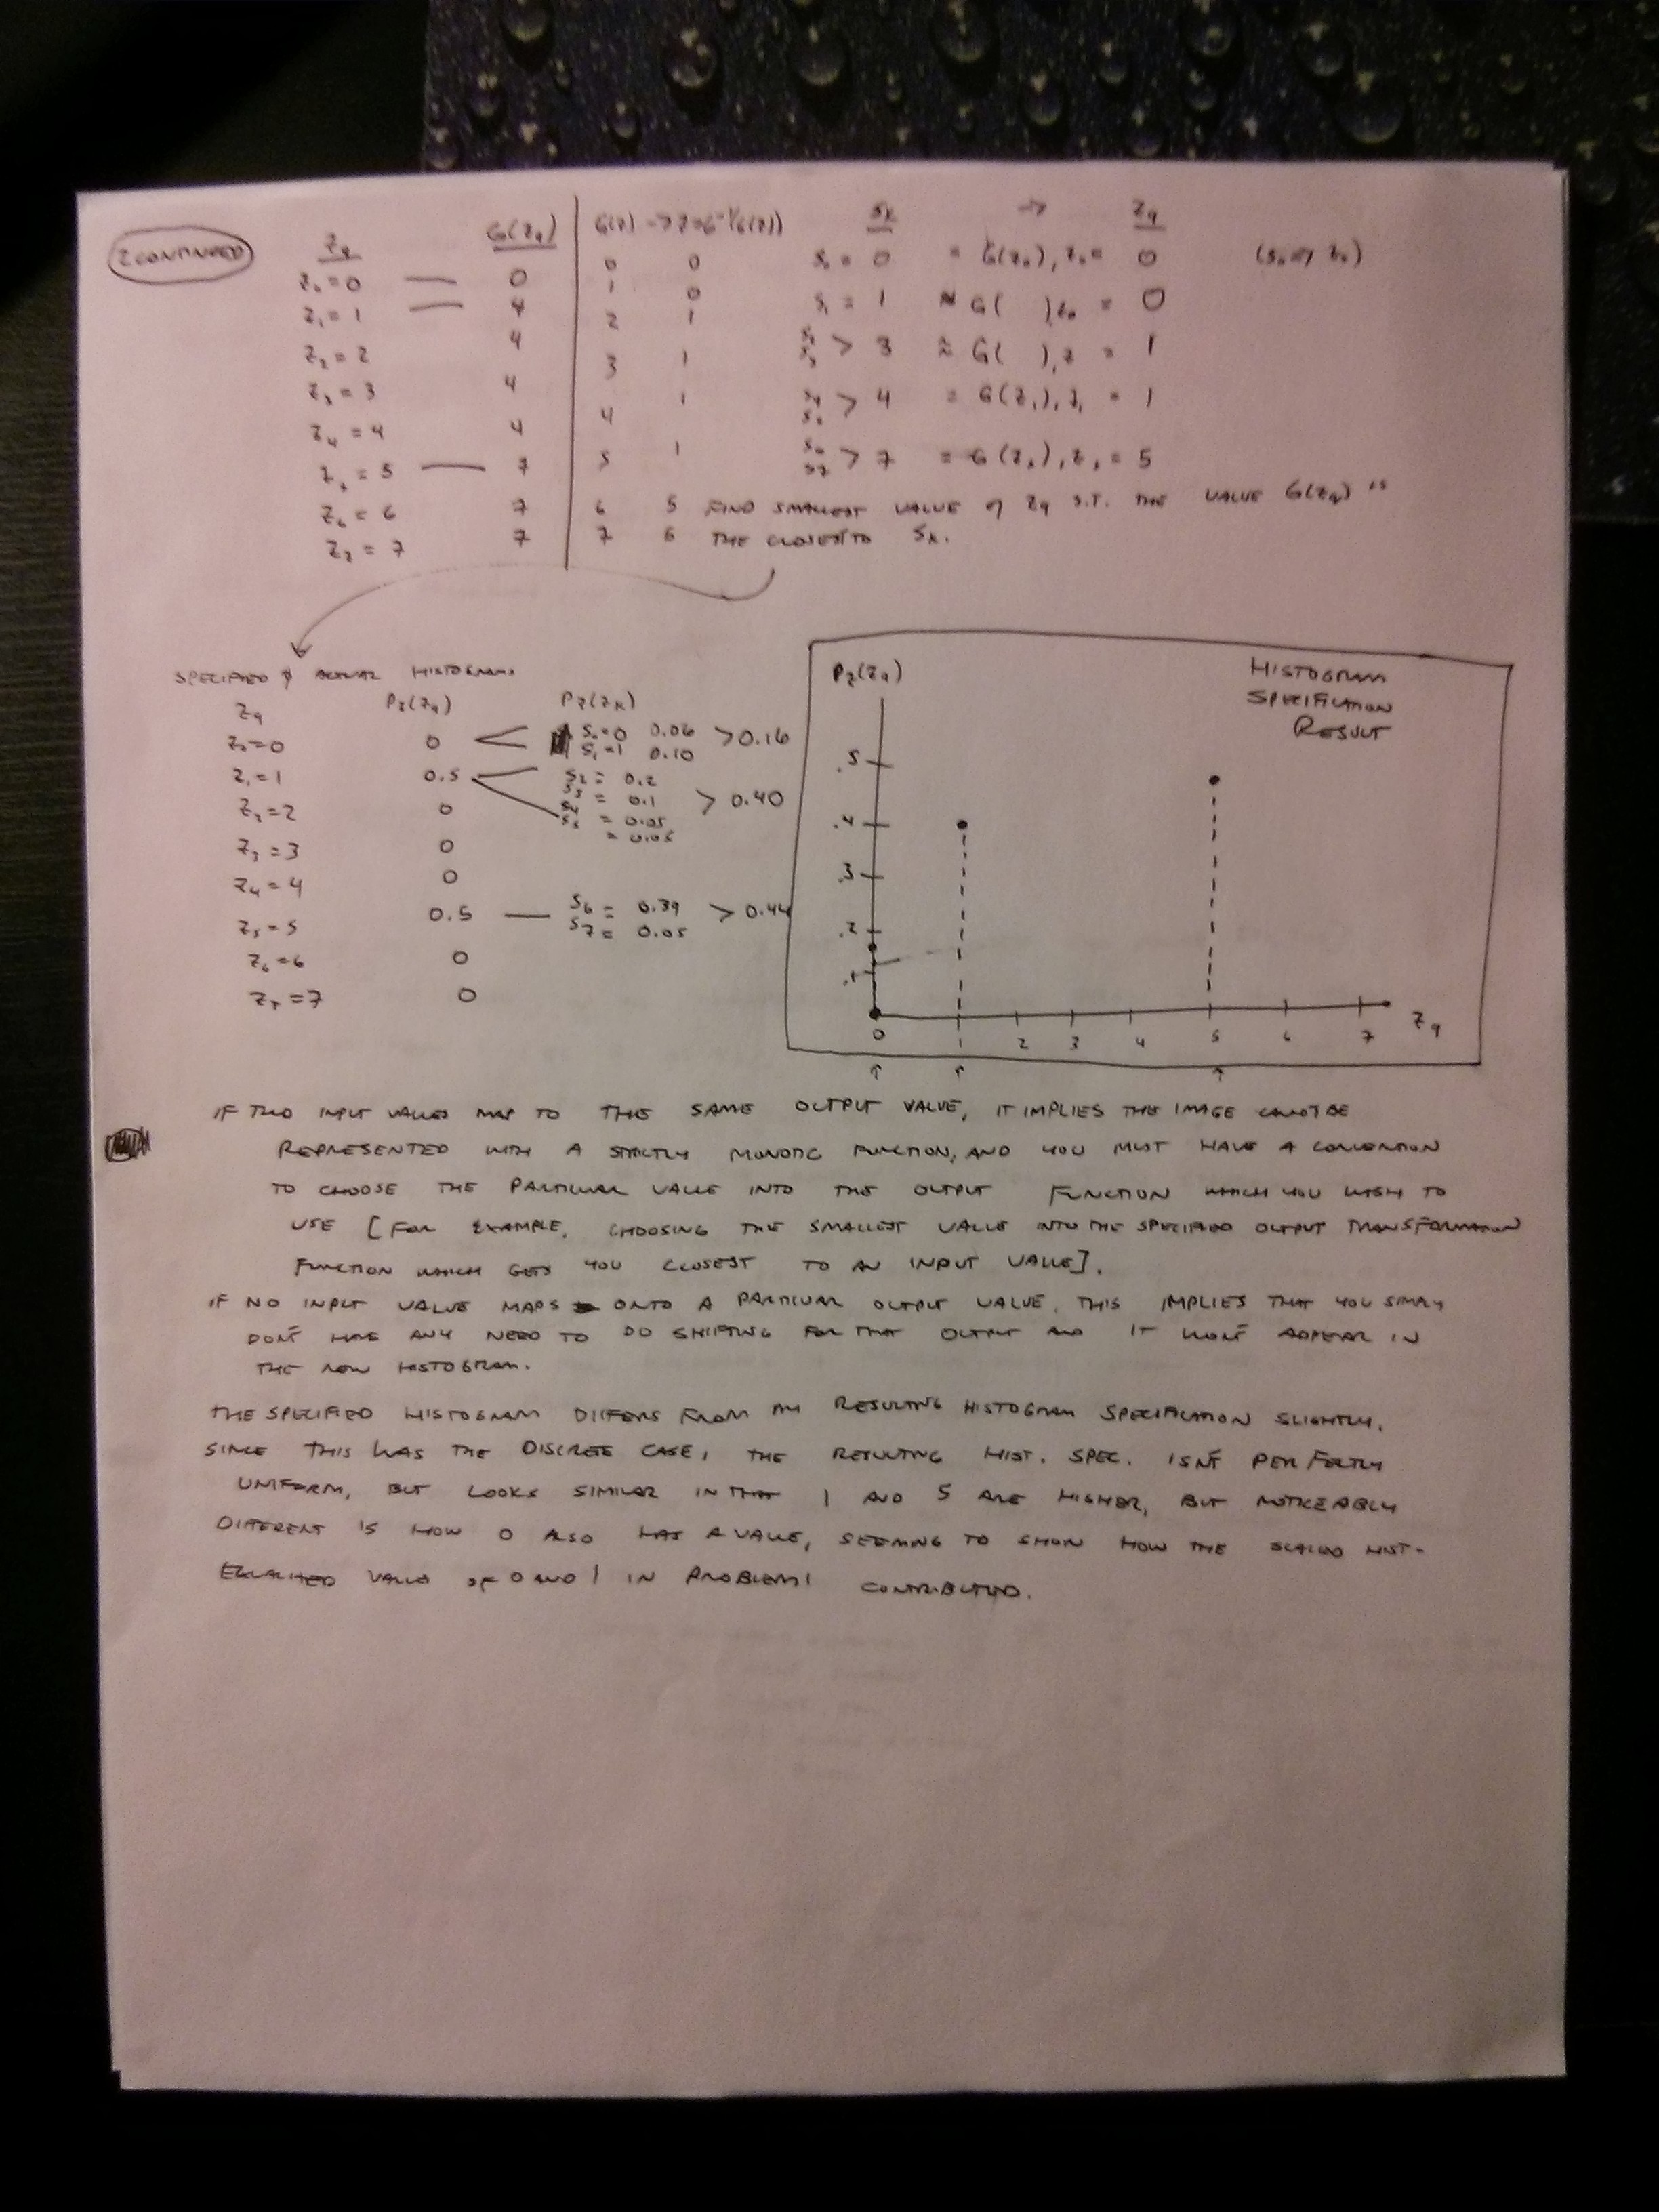 2 CONTINUED
Zq G(Zq) G(Z) -> Z=G⁻¹(G(Z)) Sk -> Zq
Z0=0 — 0 0 0 S0 = 0 = G(Z0), Z0 = 0 (S0 => Z0)
Z1=1 — 4 1 0 S1 = 1 ≈ G( )Z0 = 0
Z2=2 4 2 1 S2 S3 > 3 ≈ G( ), Z = 1
Z3=3 4 3 1 S4 S5 > 4 = G(Z1), Z1 = 1
Z4=4 4 4 1 S6 S7 > 7 = G(Z5), Z5 = 5
Z5=5 — 7 5 1
Z6=6 7 6 5 FIND SMALLEST VALUE of Zq S.T. THE VALUE G(Zq) IS
Z7=7 7 7 6 THE CLOSEST TO Sk.
SPECIFIED & ACTUAL HISTOGRAMS
Zq Pz(Zq) Pz(Zk)
Z0=0 0 S0=0 0.06 > 0.16
S1=1 0.10
Z1=1 0.5 S2 = 0.2
S3 = 0.1 > 0.40
Z2=2 0 S4 = 0.05
S5 = 0.05
Z3=3 0
Z4=4 0
Z5=5 0.5 — S6 = 0.39 > 0.44
S7 = 0.05
Z6=6 0
Z7=7 0
Pz(Zq)
HISTOGRAM
SPECIFICATION
RESULT
.5
.4
.3
.2
.1
0 1 2 3 4 5 6 7 Zq
IF TWO INPUT VALUES MAP TO THE SAME OUTPUT VALUE, IT IMPLIES THE IMAGE CANNOT BE
REPRESENTED WITH A STRICTLY MONOTIC FUNCTION, AND YOU MUST HAVE A CONVENTION
TO CHOOSE THE PARTICULAR VALUE INTO THE OUTPUT FUNCTION WHICH YOU WISH TO
USE [FOR EXAMPLE, CHOOSING THE SMALLEST VALUE INTO THE SPECIFIED OUTPUT TRANSFORMATION
FUNCTION WHICH GETS YOU CLOSEST TO AN INPUT VALUE].
IF NO INPUT VALUE MAPS ONTO A PARTICULAR OUTPUT VALUE, THIS IMPLIES THAT YOU SIMPLY
DON'T HAVE ANY NEED TO DO SHIFTING FOR THAT OUTPUT AND IT WON'T APPEAR IN
THE NEW HISTOGRAM.
THE SPECIFIED HISTOGRAM DIFFERS FROM MY RESULTING HISTOGRAM SPECIFICATION SLIGHTLY.
SINCE THIS WAS THE DISCRETE CASE, THE RESULTING HIST. SPEC. ISN'T PERFECTLY
UNIFORM, BUT LOOKS SIMILAR IN THAT 1 AND 5 ARE HIGHER, BUT NOTICEABLY
DIFFERENT IS HOW 0 ALSO HAS A VALUE, SEEMING TO SHOW HOW THE SCALED HIST-
EQUALIZED VALUES OF 0 AND 1 IN PROBLEM 1 CONTRIBUTED.